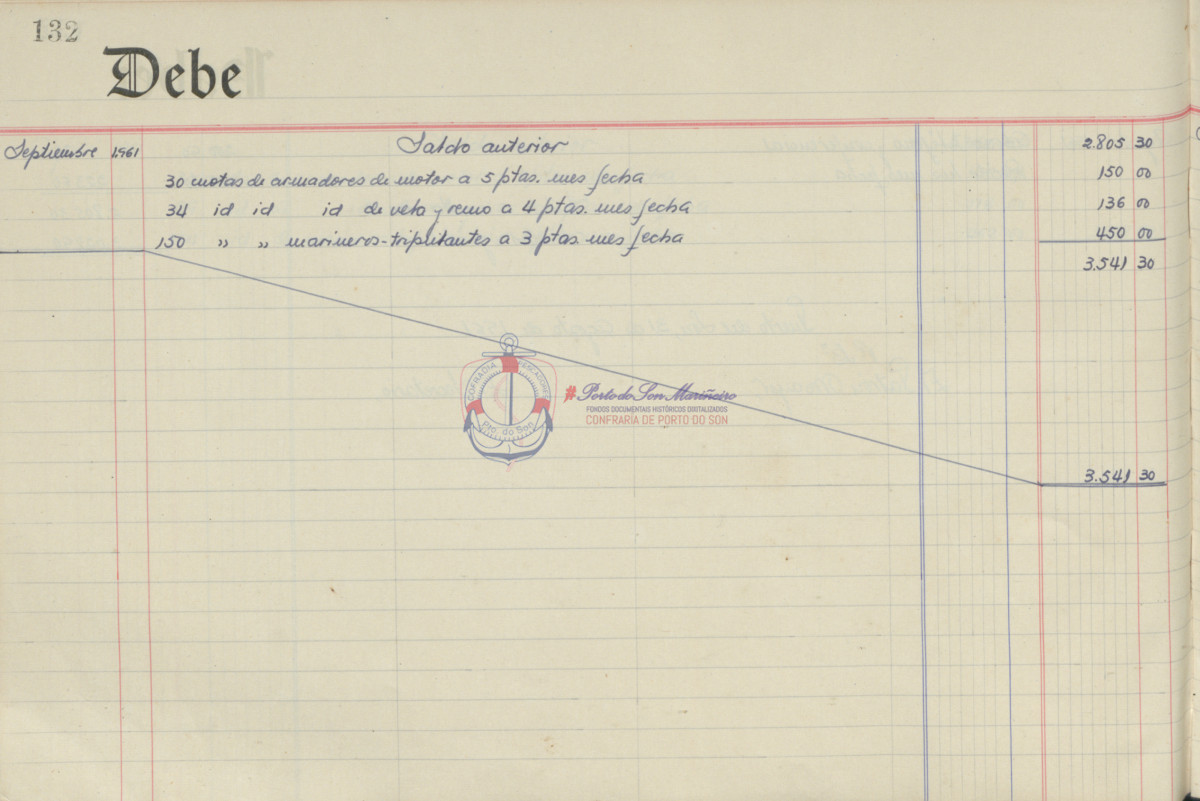 132
Debe
Septiembre 1.961 Saldo anterior 2.805 30
30 cuotas de armadores de motor a 5 ptas. mes fecha 150 00
34 id id id de vela y remo a 4 ptas. mes fecha 136 00
150 " " marineros-tripulantes a 3 ptas. mes fecha 450 00
3.541 30
COFRADIA PESCADORES
Pto. do Son
#Porto do Son Mariñeiro
FONDOS DOCUMENTAIS HISTÓRICOS DIGITALIZADOS
CONFRARIA DE PORTO DO SON
3.541 30